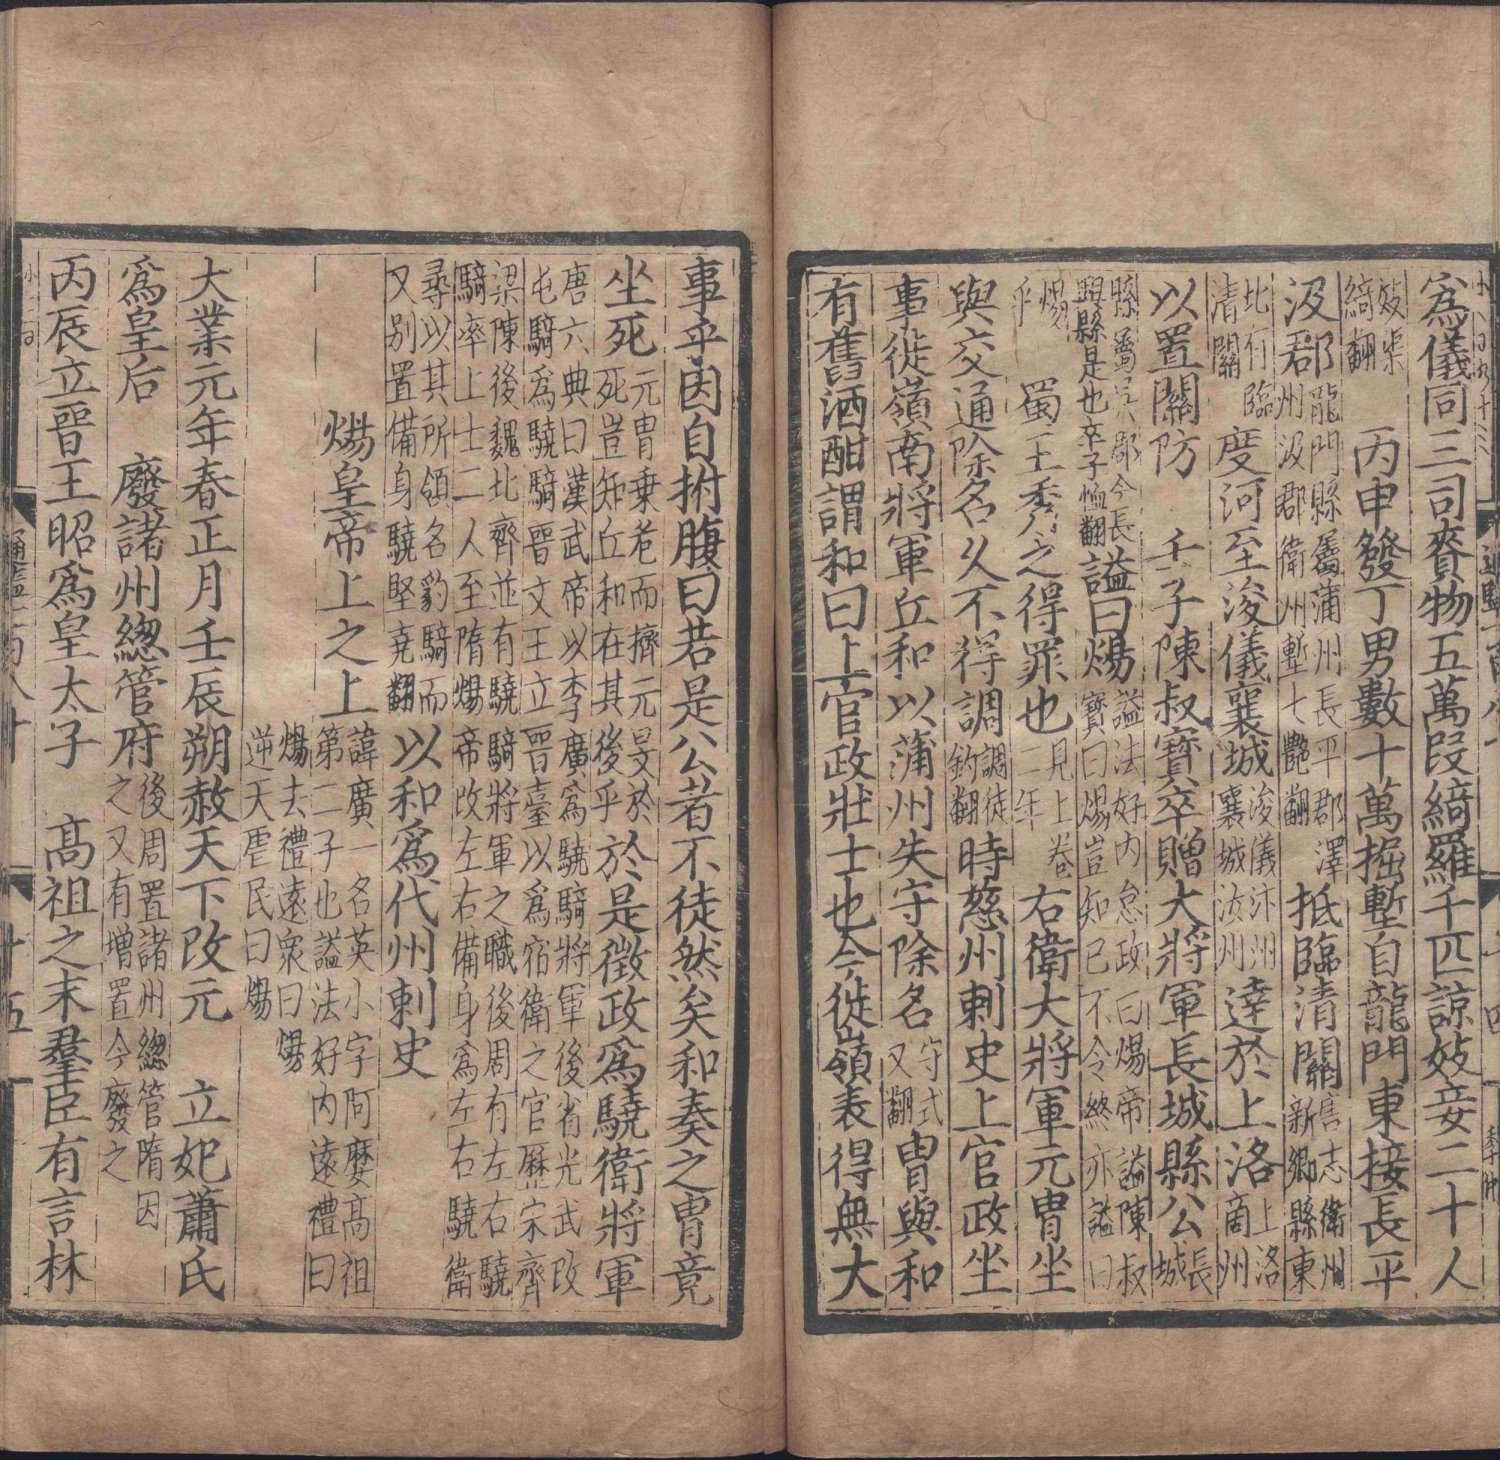 爲儀同三司賚物五萬段綺羅千匹諒妓妾二十人
妓渠綺翻 丙申發丁男數十萬掘塹自龍門東接長平
汲郡龍門縣屬蒲州長平郡澤州汲郡衛州塹七豔翻 抵臨清關唐志衛州新鄉縣東
北有臨清關 度河至浚儀襄城浚儀汴州襄城汝州 達於上洛上洛商州
以置關防 壬子陳叔寶卒贈大將軍長城縣公長城
縣屬吳郡今長興縣是也卒子恤翻 謚曰煬謚法好內怠政曰煬帝謚陳叔寶曰煬豈知己不令終亦謚曰
煬乎 蜀王秀之得罪也見上卷二年 右衛大將軍元胄坐
與交通除名久不得調調徒釣翻 時慈州刺史上官政坐
事徙嶺南將軍丘和以蒲州失守除名守式又翻 胄與和
有舊酒酣謂和曰上官政壯士也今徙嶺表得無大
事乎因自拊腹曰若是公者不徒然矣和奏之胄竟
坐死元胄乘危而擠元旻於死豈知丘和在其後乎 於是徵政爲驍衛將軍
唐六典曰漢武帝以李廣爲驍騎將軍後省光武改屯騎爲驍騎晉文王立晉臺以爲宿衛之官歷宋齊
梁陳後魏北齊並有驍騎將軍之職後周有左右驍騎率上士二人至隋煬帝改左右備身爲左右驍衛
尋以其所領名豹騎而又別置備身驍堅堯翻 以和爲代州刺史
煬皇帝上之上諱廣一名英小字阿𡡉高祖第二子也謚法好內遠禮曰
煬去禮遠衆曰煬逆天虐民曰煬
大業元年春正月壬辰朔赦天下改元 立妃蕭氏
爲皇后 廢諸州總管府後周置諸州總管隋因之又有增置今廢之
丙辰立晉王昭爲皇太子 高祖之末羣臣有言林